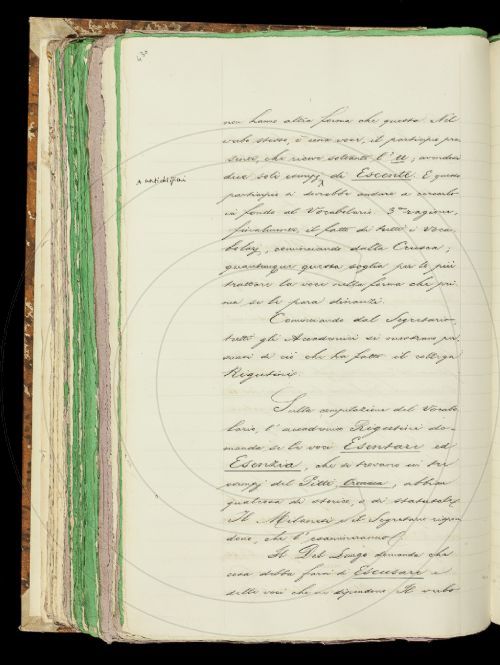 non hanno altra forma che questa. Nel
verbo stesso, è una voce, il participio pre
sente, che riceve soltanto l' u; avendosi
due soli esempj di Escente. E questo
antichissimi
participio si dovrebbe andare a cercarlo
in fondo al Vocabolario. 3ª ragione,
finalmente, il fatto di tutti i Voca
bolarj, cominciando dalla Crusca;
quantunque questa soglia per lo più
trattare la voce nella forma che pri
ma se le para dinanzi.
Cominciando dal Segretario,
tutti gli Accademici si mostrano per
suasi di ciò che ha fatto il collega
Rigutini.
Sulla compilazione del Vocabo
lario, l' accademico Rigutini do
manda se le voci Esentare ed
Esenzia, che si trovano in tre
esempj del Pitti, abbian
qualcosa di storico, o di statutale.
Il Milanesi e il Segretario rispon
dono, che l' esamineranno.
Il Del Lungo domanda che
cosa debba farsi di Escusare e
delle voci che ne dipendono. Il verbo